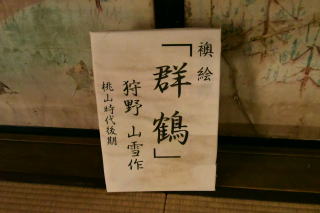 襖絵
「群鶴」
狩野 山雪作
桃山時代後期